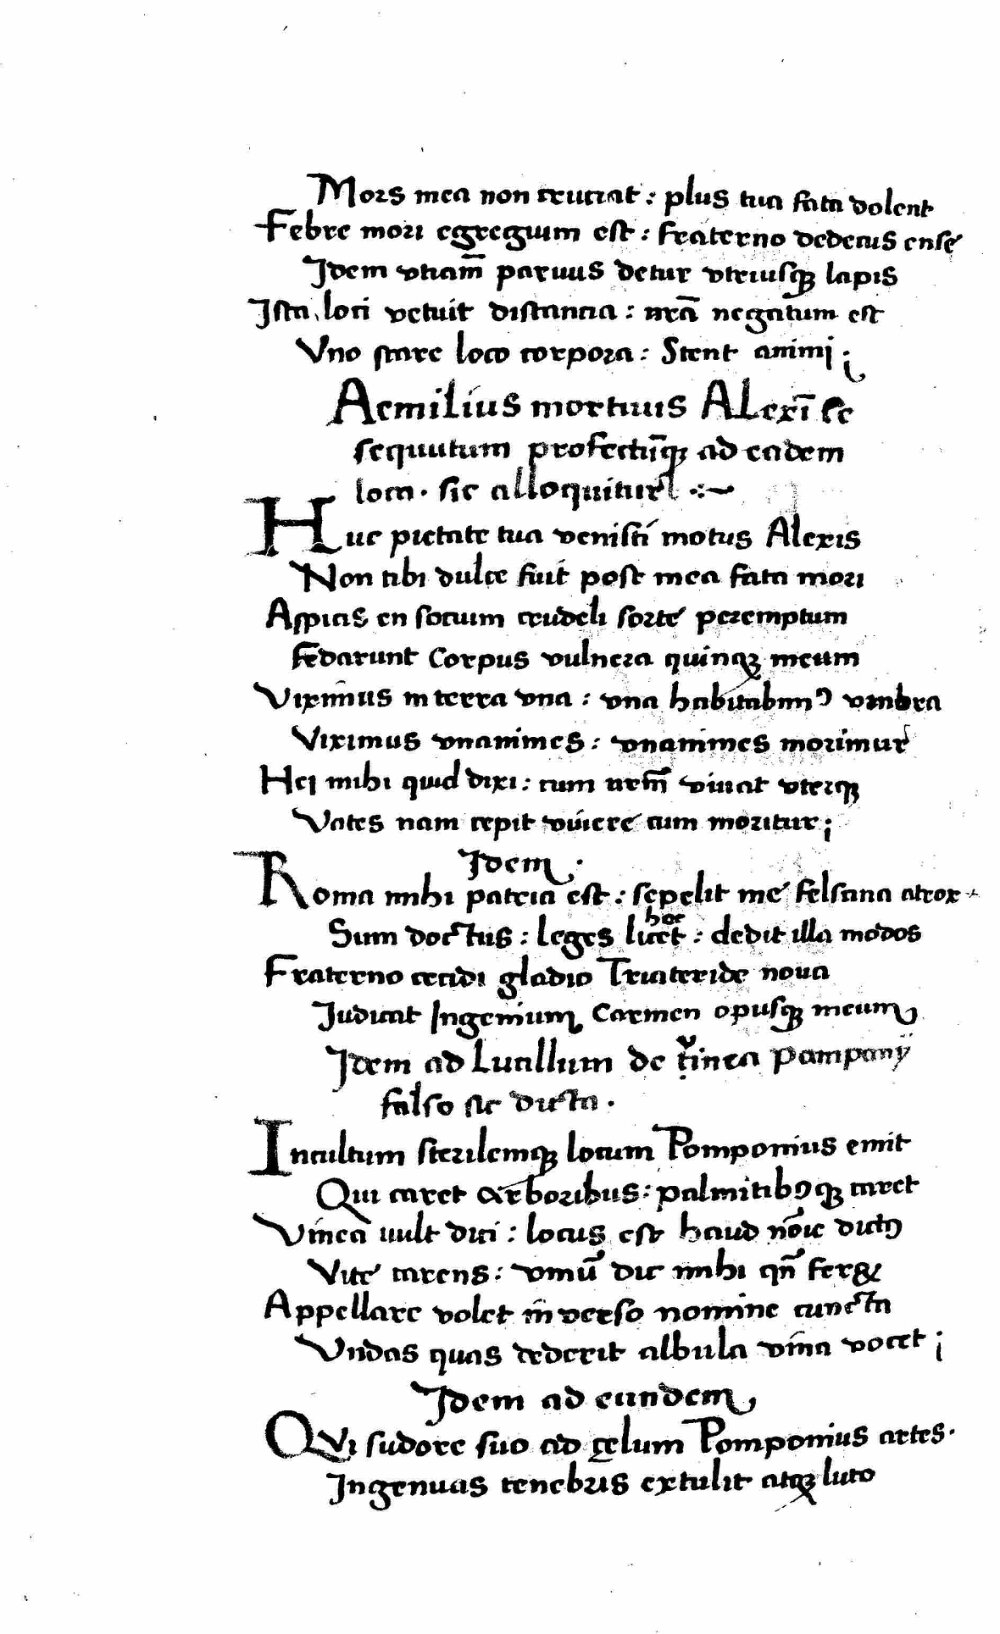 Mors mea non cruciat : plus tua fata dolent
Febre mori egregium est : fraterno dedecus ense
Idem utinam̄ paruus detur utriusqꝫ lapis
Ista loci uetuit distancia : nr̄a negatum est
Vno stare loco corpora : Stent animi ;
Aemilius mortuus Alexī se
sequutum profectūqꝫ ad eadem
loca · sic alloquitur :~
Huc pietate tua uenisti motus Alexis
Non tibi dulce fuit post mea fata mori
Aspicis en socium crudeli sorte peremptum
fedarunt Corpus uulnera quinqꝫ meum
Viximus in terra una : una habitabimꝰ umbra
Viximus unanimes : unanimes morimur
Hei mihi quid dixi : cum nrm̄ uiuat uterqꝫ
Vates nam cepit uiuere cum moritur ;
Idem .
Roma mihi patria est : sepelit me felsina atrox
Sum doctus : leges licet hoc : dedit illa modos
Fraterno cecidi gladio Trieteride noua
Iudicat Ingenium Carmen opusqꝫ meum
Idem ad Lucillum de uinea pamponij
falso sic dicta .
Incultum sterilemqꝫ locum Pomponius emit
Qui caret arboribus : palmitibꝰqꝫ caret
Vinea uult dici : locus est haud noīe dictꝰ
Vite carens : uinū dic mihi qn̄ feret
Appellare uolet inuerso nomine cuncta
Vndas quas dederit albula uina uocet ;
Idem ad eundem
QVi sudore suo ad celum Pomponius artes .
Ingenuas tenebris extulit atqꝫ luto